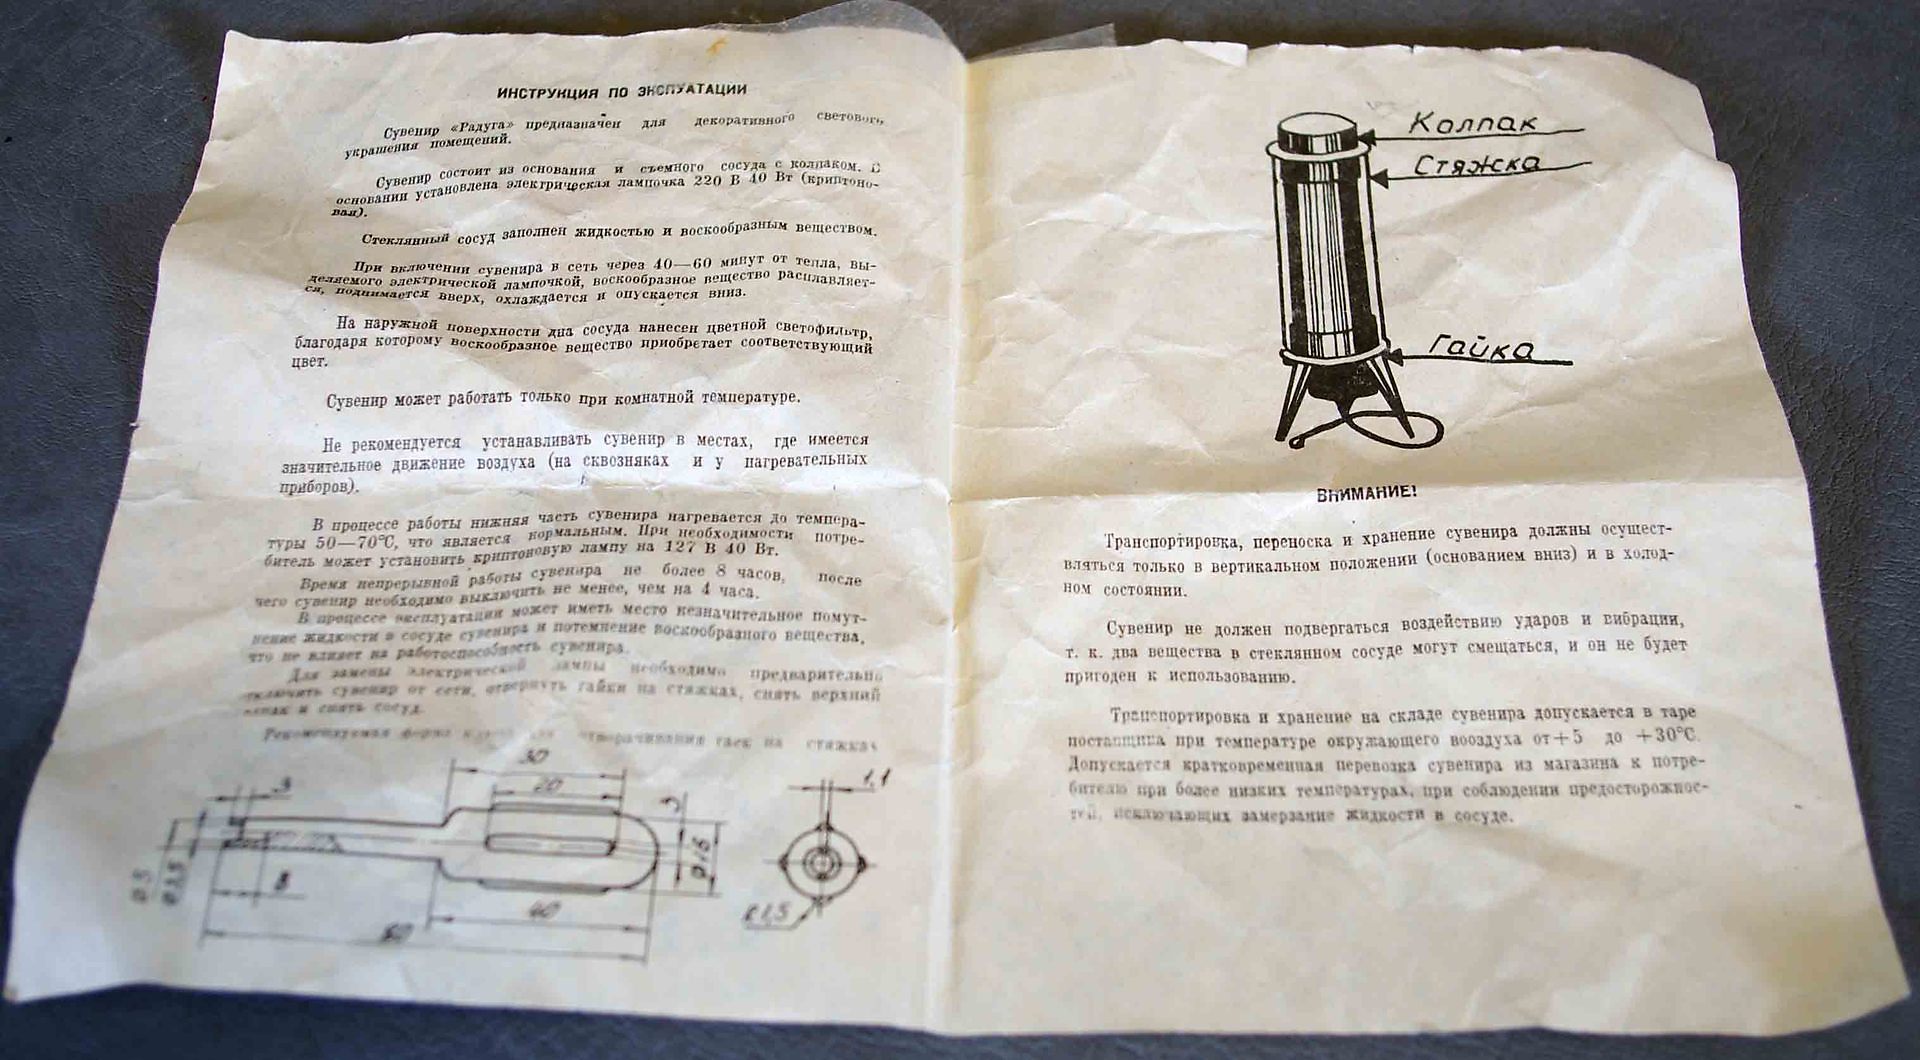 ИНСТРУКЦИЯ ПО ЭКСПУАТАЦИИ
Сувенир «Радуга» предназначен для декоративного светового
украшения помещений.
Сувенир состоит из основания и съемного сосуда с колпаком. В
основании установлена электрическая лампочка 220 В 40 Вт (криптоно-
вая).
Стеклянный сосуд заполнен жидкостью и воскообразным веществом.
При включении сувенира в сеть через 40—60 минут от тепла, вы-
деляемого электрической лампочкой, воскообразное вещество расплавляет-
ся, поднимается вверх, охлаждается и опускается вниз.
На наружной поверхности дна сосуда нанесен цветной светофильтр,
благодаря которому воскообразное вещество приобретает соответствующий
цвет.
Сувенир может работать только при комнатной температуре.
Не рекомендуется устанавливать сувенир в местах, где имеется
значительное движение воздуха (на сквозняках и у нагревательных
приборов).
В процессе работы нижняя часть сувенира нагревается до темпера-
туры 50—70°С, что является нормальным. При необходимости потре-
битель может установить криптоновую лампу на 127 В 40 Вт.
Время непрерывной работы сувенира не более 8 часов, после
чего сувенир необходимо выключить не менее, чем на 4 часа.
В процессе эксплуатации может иметь место незначительное помут-
нение жидкости в сосуде сувенира и потемнение воскообразного вещества,
что не влияет на работоспособность сувенира.
Для замены электрической лампы необходимо предварительно
отключить сувенир от сети, отвернуть гайки на стяжках, снять верхний
колпак и снять сосуд.
Рекомендуемая форма ключа для отворачивания гаек на стяжках
30
20
3
3
1,1
ø5
ø3,5
8
ø16
40
80
R1,5
Колпак
Стяжка
Гайка
ВНИМАНИЕ!
Транспортировка, переноска и хранение сувенира должны осущест-
вляться только в вертикальном положении (основанием вниз) и в холод-
ном состоянии.
Сувенир не должен подвергаться воздействию ударов и вибрации,
т. к. два вещества в стеклянном сосуде могут смещаться, и он не будет
пригоден к использованию.
Транспортировка и хранение на складе сувенира допускается в таре
поставщика при температуре окружающего вооздуха от+5 до +30°С.
Допускается кратковременная перевозка сувенира из магазина к потре-
бителю при более низких температурах, при соблюдении предосторожнос-
тей, исключающих замерзание жидкости в сосуде.